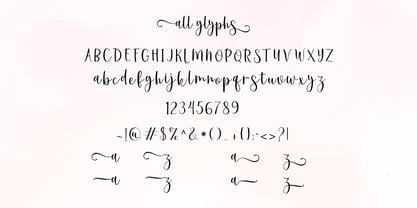 all glyphs
ABCDEFGHIJKLMNOPQRSTUVWXYZ
abcdefghijklmnopqrstuvwxyz
123456789
~|@#$%^&*()_+{}:-<>?|
a z a z
a z a z